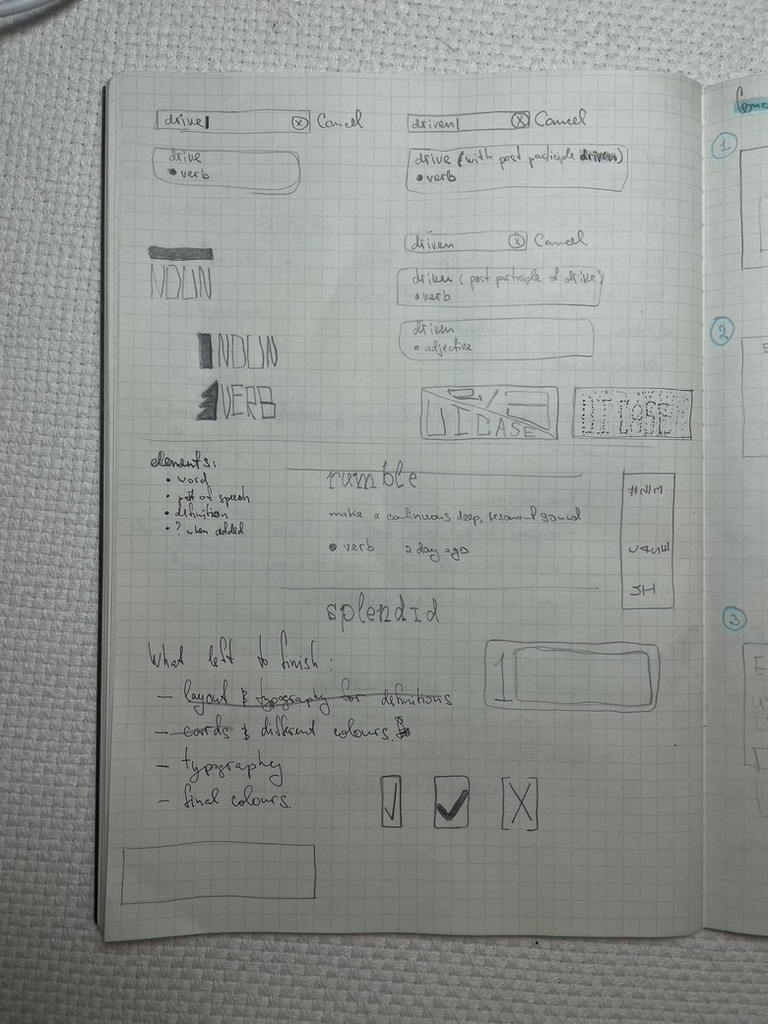 drive Cancel
drive
• verb
driven Cancel
drive (with past participle driven)
• verb
driven Cancel
driven (past participle of drive)
• verb
driven
• adjective
NOUN
NOUN
VERB
UI CASE
UI CASE
elements:
• word
• part of speech
• definition
• ? when added
rumble
make a continuous deep, resonant sound
• verb 2 day ago
splendid
What left to finish:
– layout & typography for definitions
– cards & different colours.
– typography
– final colours.
1
1
2
3